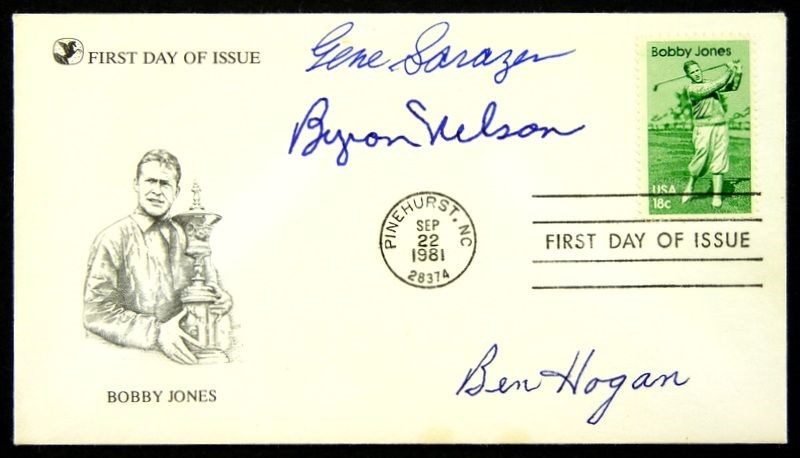 FIRST DAY OF ISSUE
Gene Sarazen
Byron Nelson
Bobby Jones
USA
18c
PINEHURST, NC
SEP
22
1981
28374
FIRST DAY OF ISSUE
BOBBY JONES
Ben Hogan